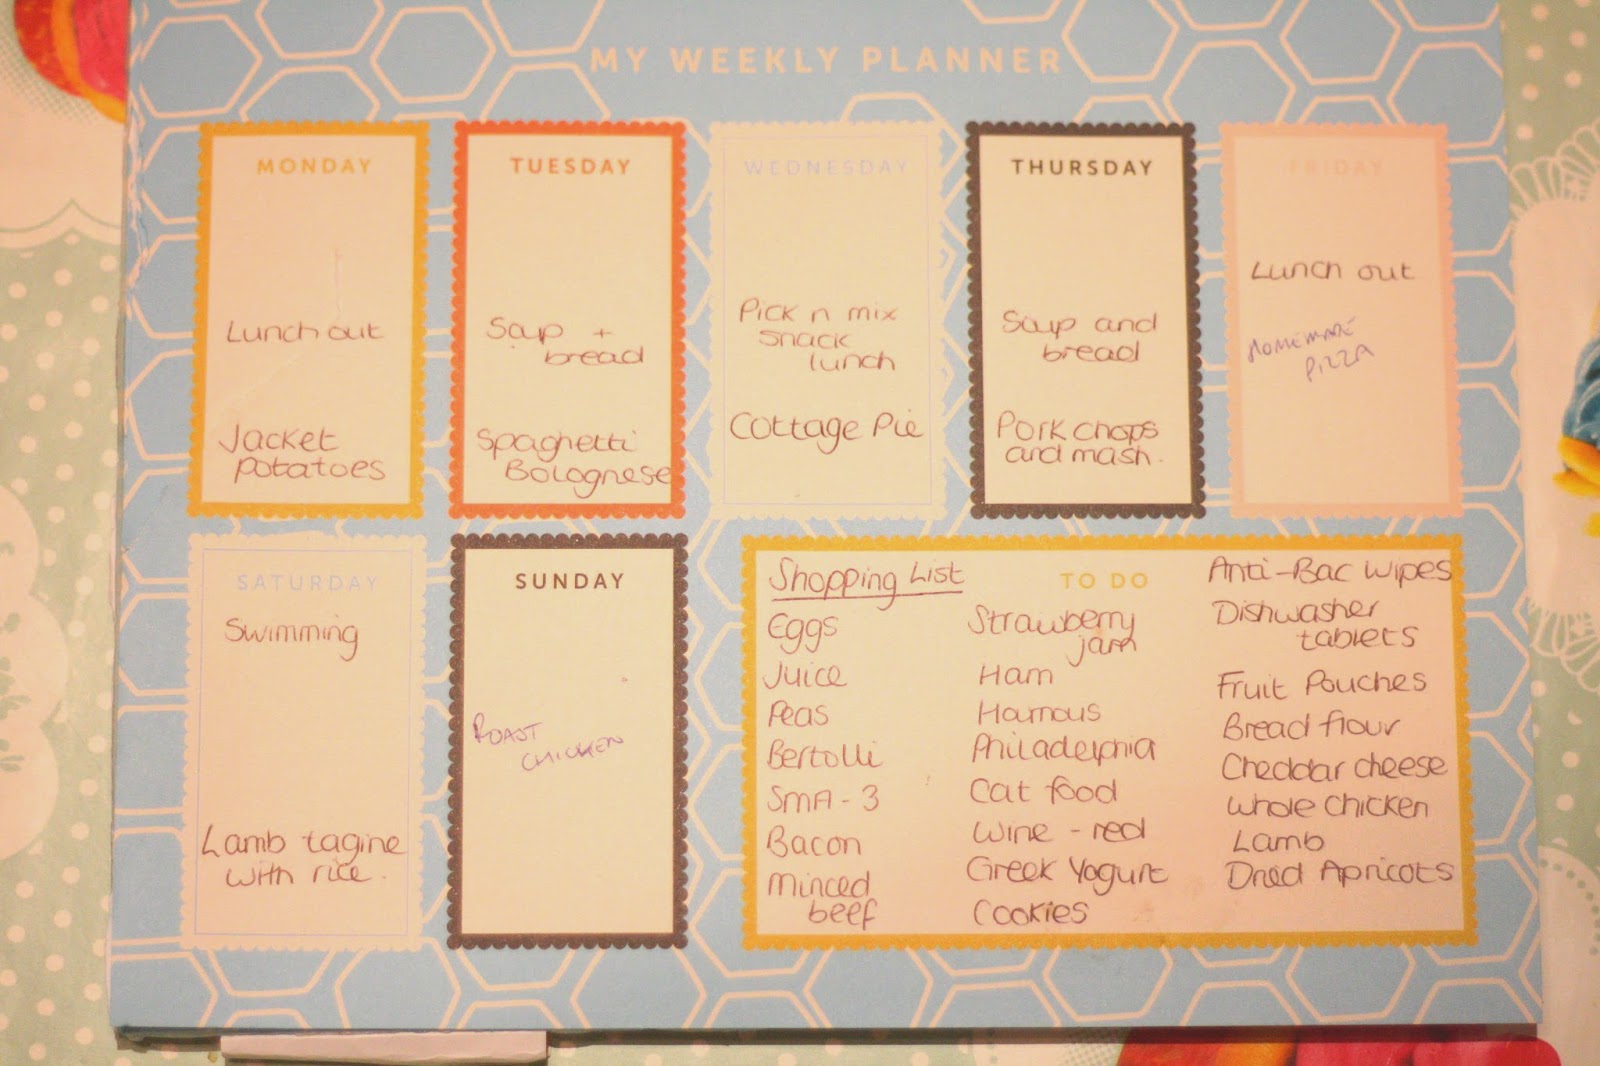 MY WEEKLY PLANNER
MONDAY
Lunch out
Jacket
potatoes
TUESDAY
Soup +
bread
Spaghetti
Bolognese
WEDNESDAY
Pick n mix
snack
lunch
Cottage Pie
THURSDAY
Soup and
bread
Pork chops
and mash.
FRIDAY
Lunch out
HOMEMADE
PIZZA
SATURDAY
Swimming
Lamb tagine
with rice.
SUNDAY
ROAST
CHICKEN
TO DO
Shopping List
Eggs
Juice
Peas
Bertolli
SMA - 3
Bacon
Minced
beef
Strawberry
jam
Ham
Hamous
Philadelphia
Cat food
Wine - red
Greek Yogurt
Cookies
Anti-Bac Wipes
Dishwasher
tablets
Fruit Pouches
Bread flour
Cheddar cheese
Whole chicken
Lamb
Dried Apricots